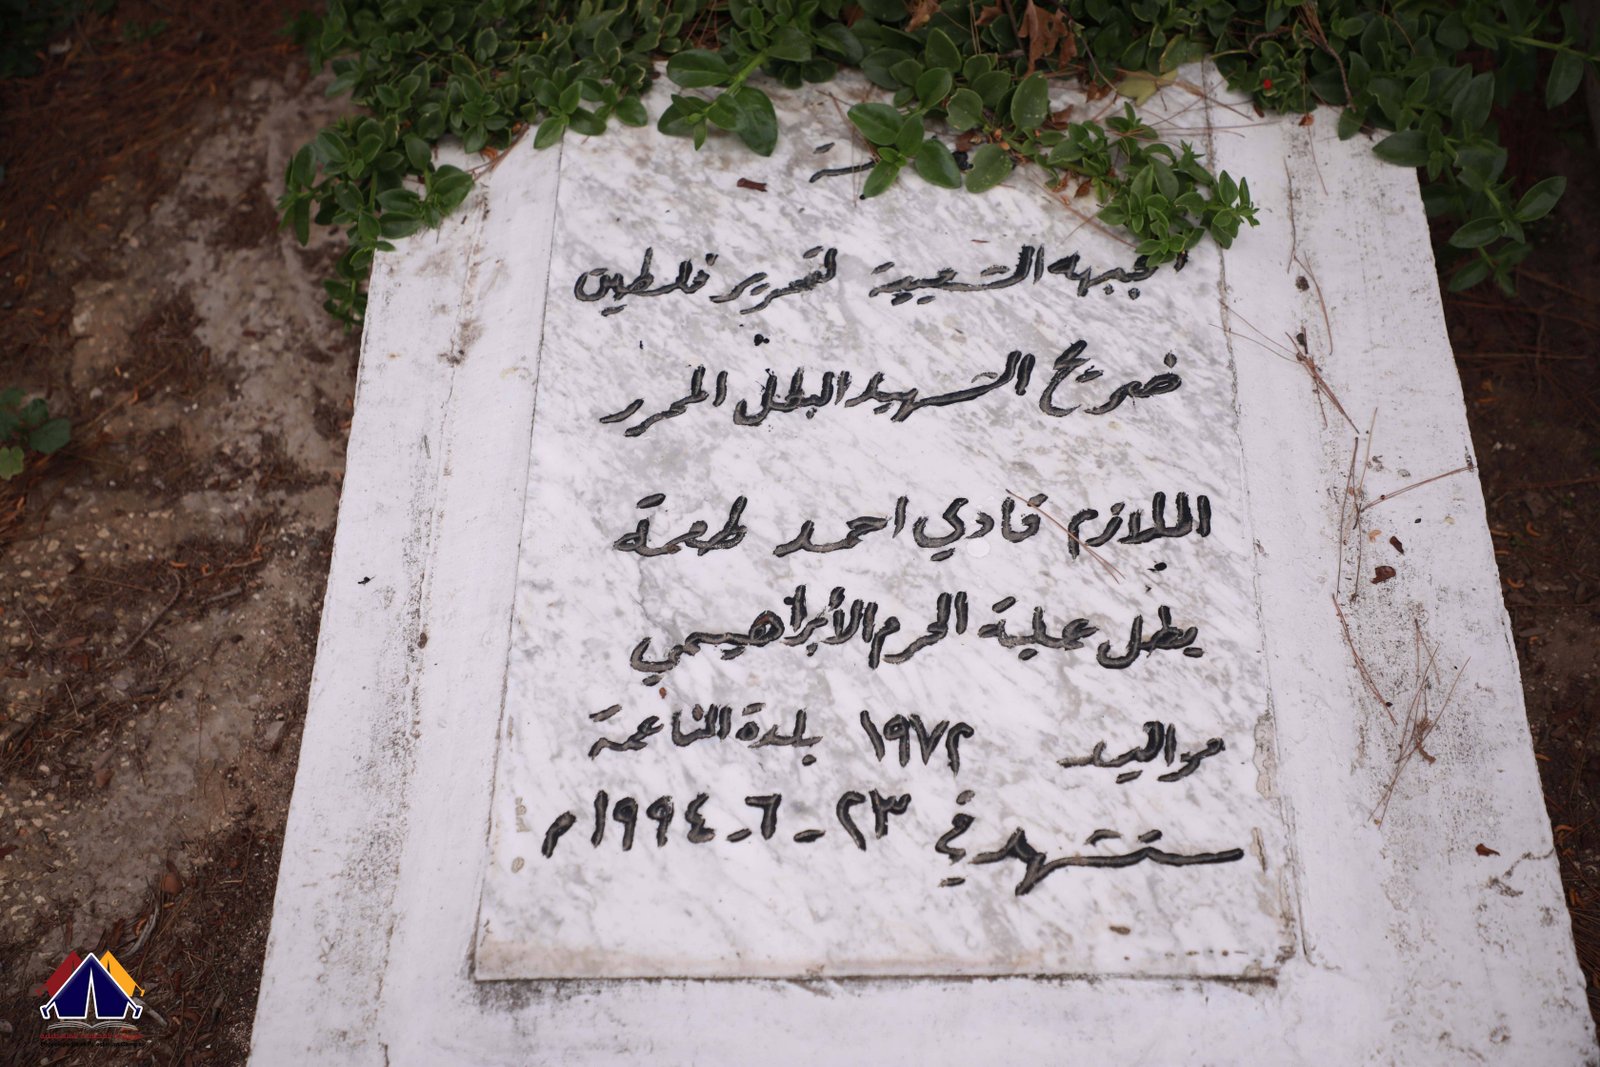 الجبهه الشعبية لتحرير فلسطين
ضريح الشهيد البطل المحرر
الملازم فادي احمد طعمة
بطل عملية الحرم الأبراهيمي
مواليد ١٩٧٢ بلدة الناعمة
ستشهد في ٢٣-٦-١٩٩٤م